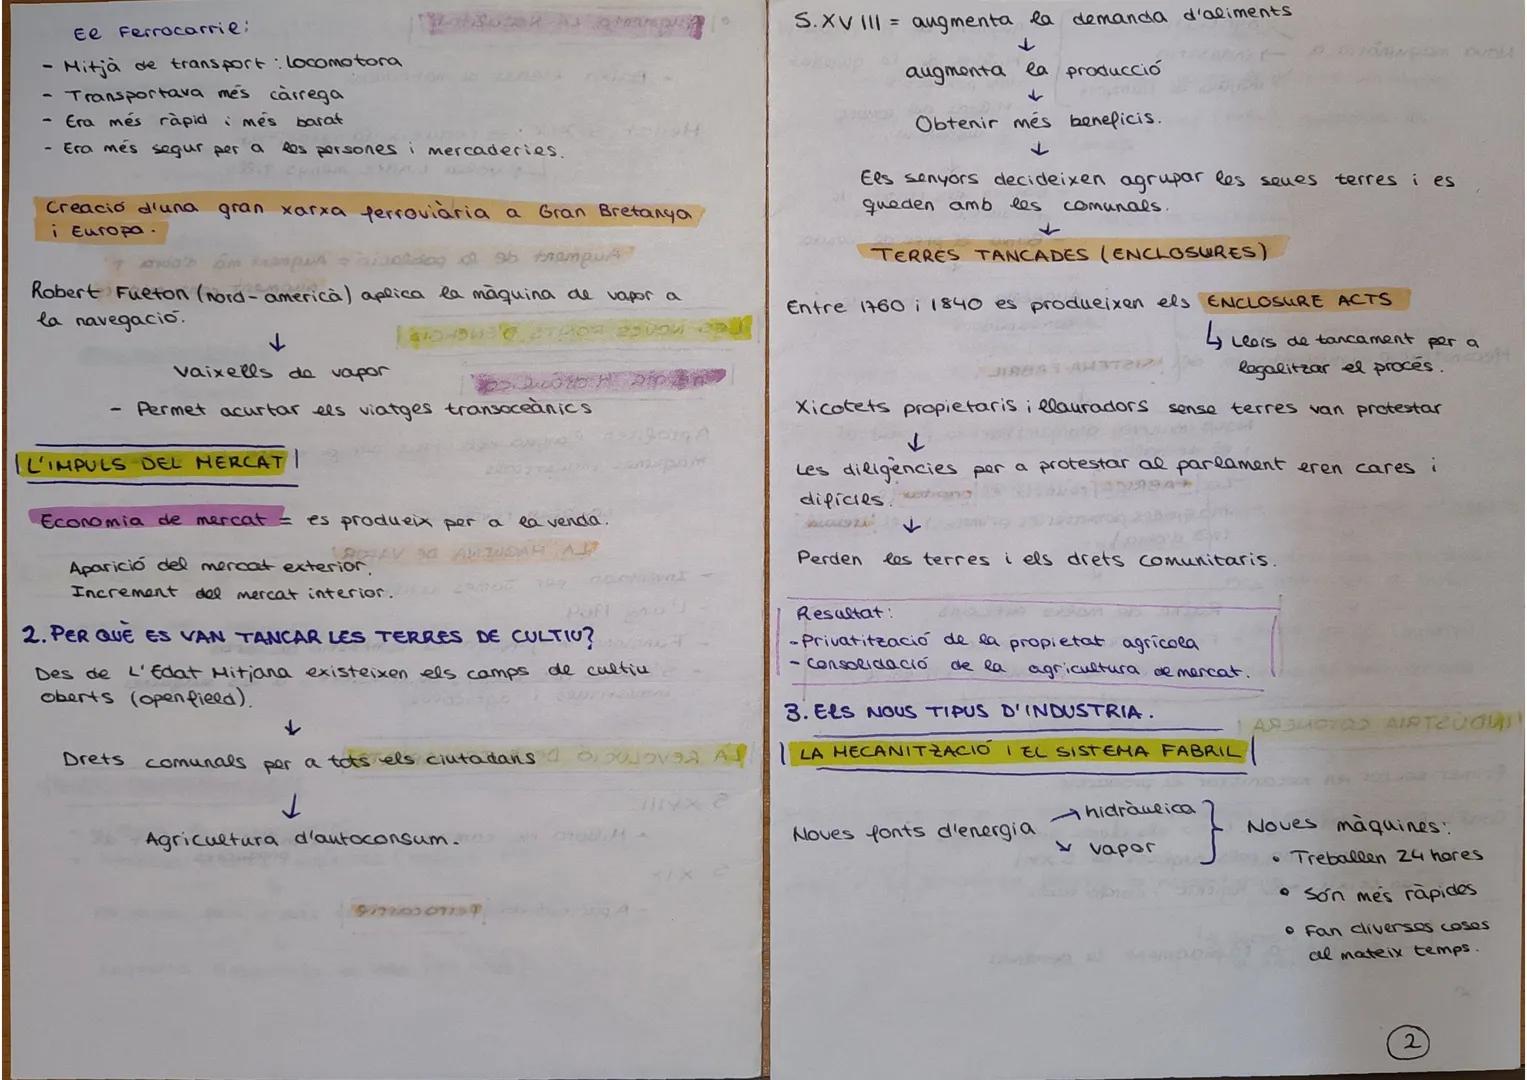 El Ferrocarril:
- Mitjà de transport: locomotora
- Transportava més càrrega
- Era més ràpid i més barat
- Era més segur per a les persones i mercaderies.
Creació d'una gran xarxa ferroviària a Gran Bretanya
i Europa.
Robert Fulton (nord-americà) aplica la màquina de vapor a
la navegació.
↓
Vaixells de vapor
- Permet acurtar els viatges transoceànics
L'IMPULS DEL MERCAT
Economia de mercat = es produeix per a la venda.
Aparició del mercat exterior.
Increment del mercat interior.
2. PER QUÈ ES VAN TANCAR LES TERRES DE CULTIU?
Des de L'Edat Mitjana existeixen els camps de cultiu
oberts (openfield).
↓
Drets comunals per a tots els ciutadans
↓
Agricultura d'autoconsum.
S.XVIII = augmenta la demanda d'aliments
↓
augmenta la producció
↓
Obtenir més beneficis.
↓
Els senyors decideixen agrupar les seues terres i es
queden amb les comunals.
↓
TERRES TANCADES (ENCLOSURES)
Entre 1760 i 1840 es produeixen els ENCLOSURE ACTS
↳ Lleis de tancament per a
legalitzar el procés.
Xicotets propietaris i llauradors sense terres van protestar
↓
Les diligències per a protestar al parlament eren cares i
difícils.
↓
Perden les terres i els drets comunitaris.
Resultat:
- Privatització de la propietat agrícola
- Consolidació de la agricultura de mercat.
3. ELS NOUS TIPUS D'INDUSTRIA.
LA MECANITZACIÓ I EL SISTEMA FABRIL
Noves fonts d'energia → hidràulica
↘ vapor
Noves màquines:
• Treballen 24 hores
• Són més ràpides
• Fan diverses coses
al mateix temps.
2